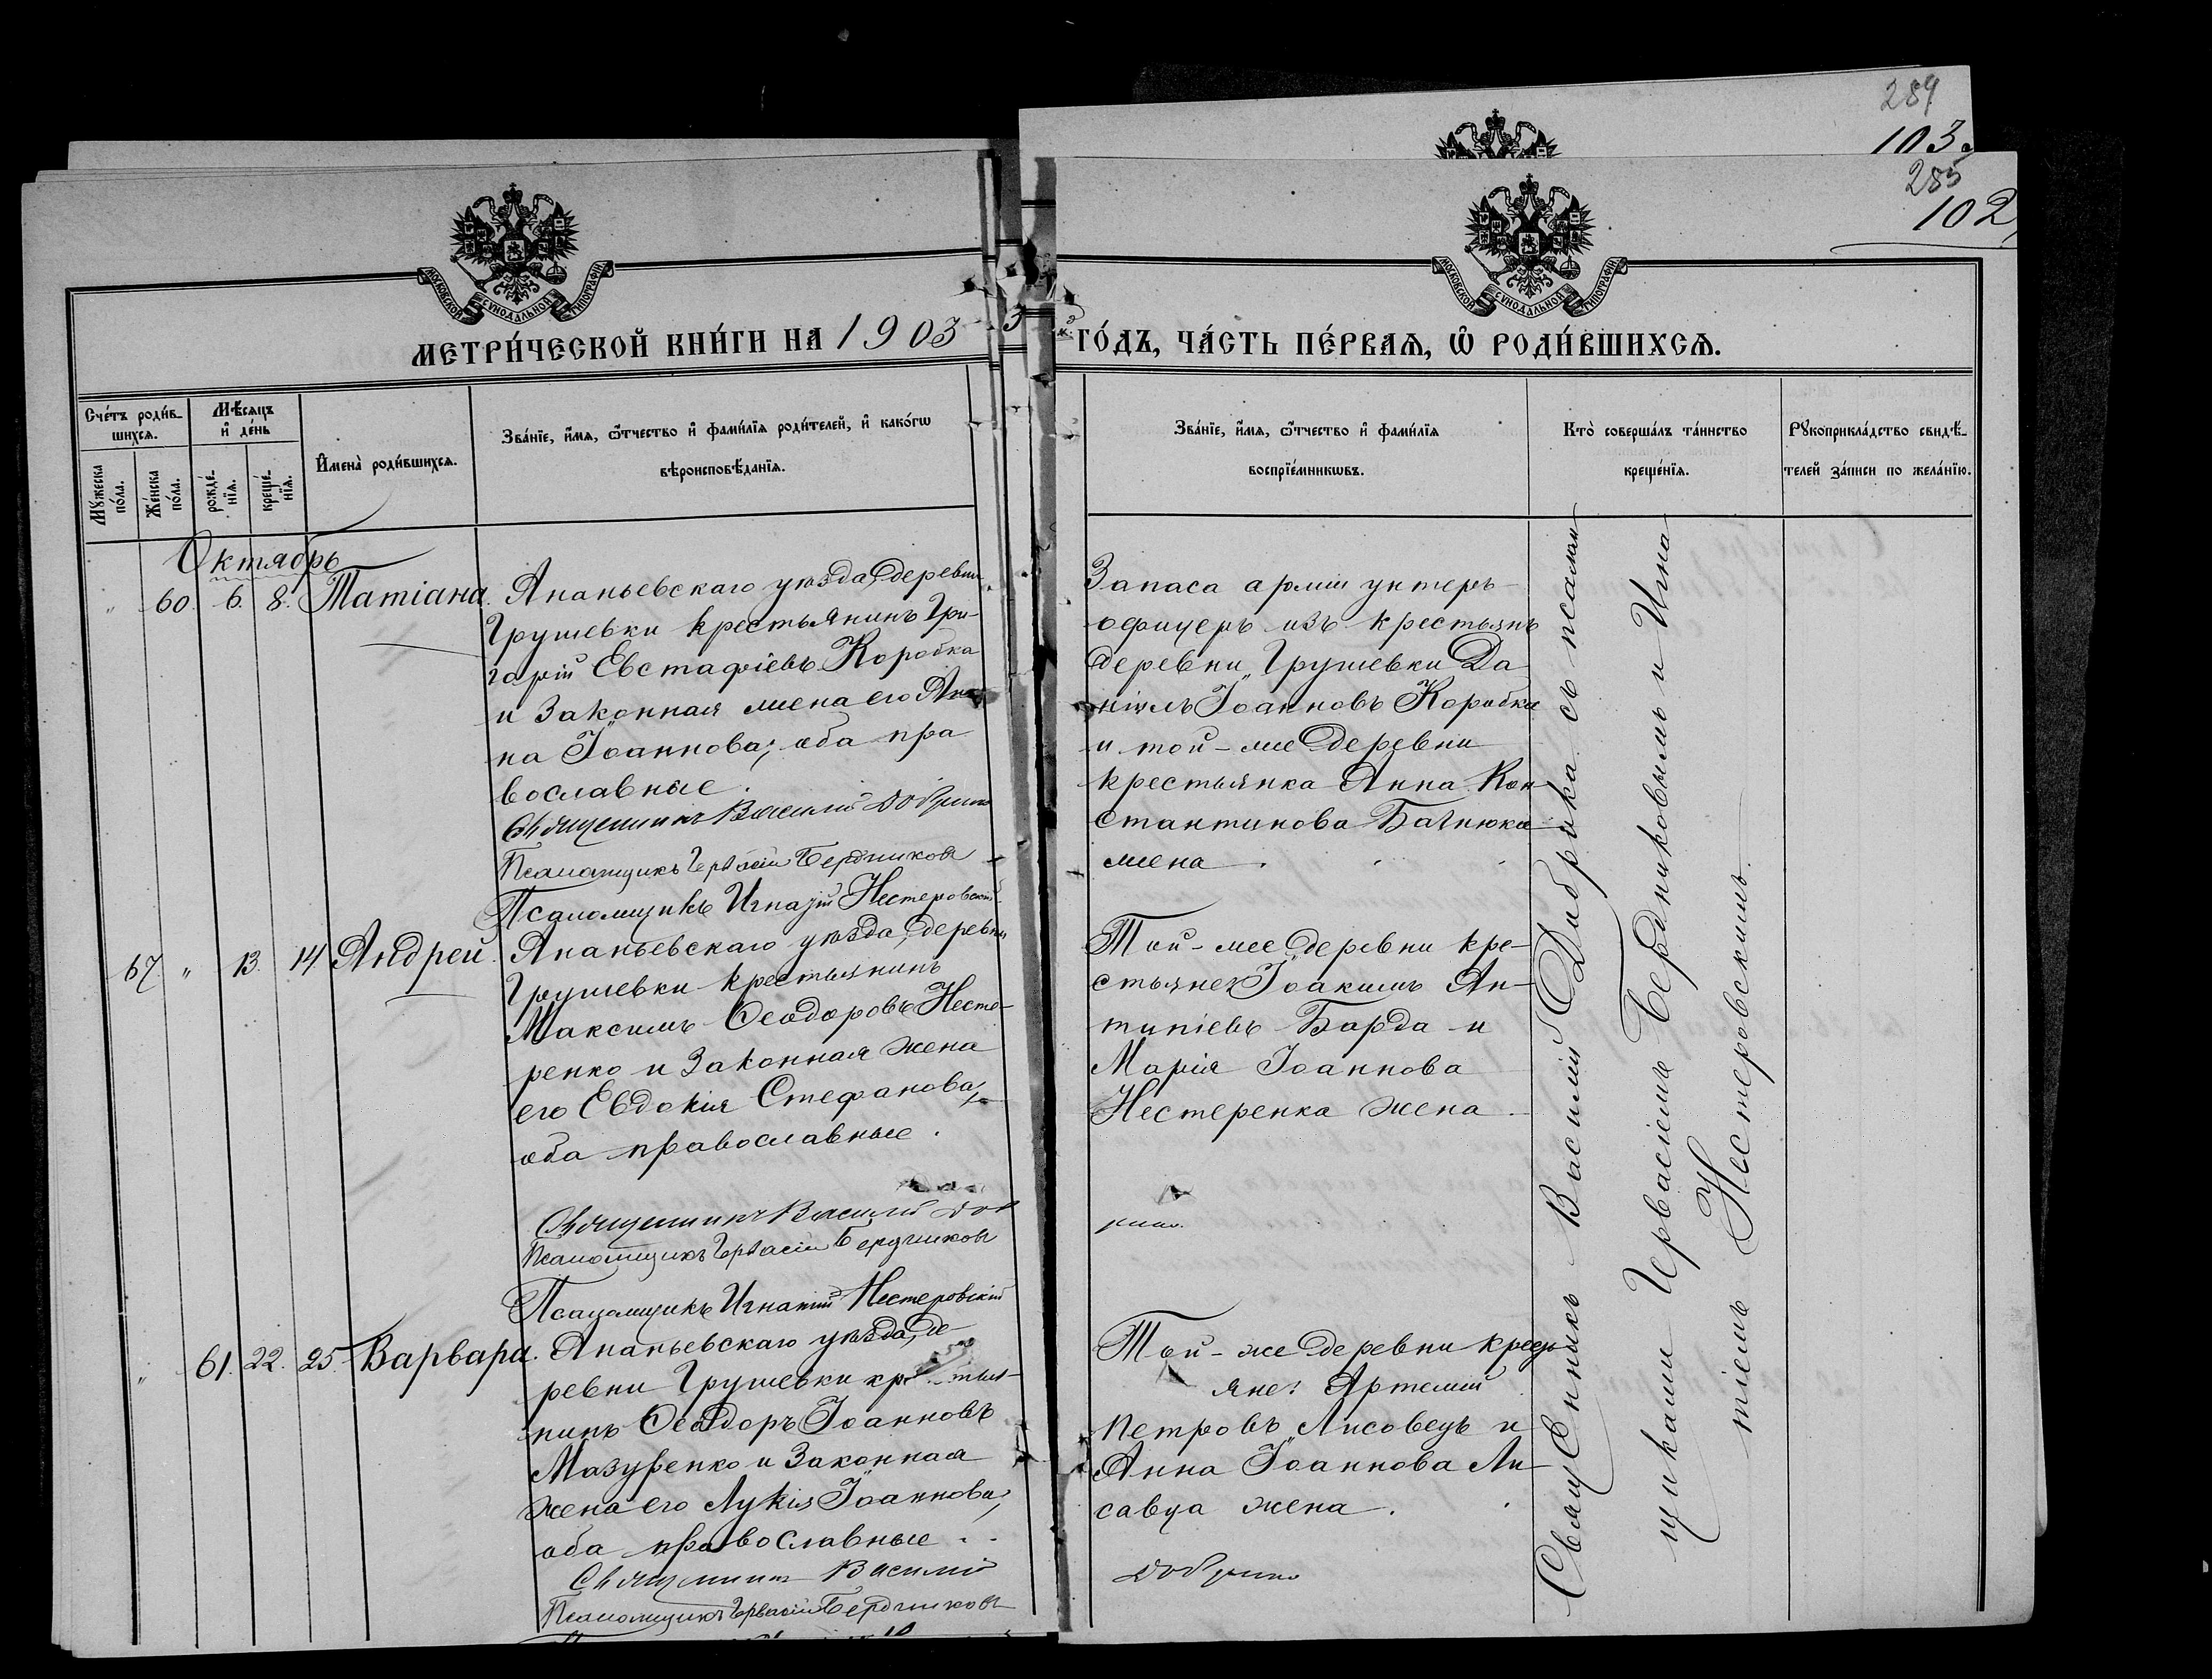 289
103.
285
102
МОСКОВСКОЙ СѴНОДАЛЬНОЙ ТИПОГРАФІИ
МОСКОВСКОЙ СѴНОДАЛЬНОЙ ТИПОГРАФІИ
МЕТРИ́ЧЕСКОЙ КНИ́ГИ НА 1903 ГО́ДЪ, ЧА́СТЬ ПЕ́РВАѦ, Ѽ РОДИ́ВШИХСѦ.
Сче́тъ роди́в-
шихсѧ.
Мꙋжеска
по́ла.
Же́нска
по́ла.
Мѣ́сѧцъ
и҆ де́нь
рожде́-
нїѧ.
креще́-
нїѧ.
И҆мена̀ роди́вшихсѧ.
Зва́нїе, и҆́мѧ, ѻ҆́тчество и҆ фами́лїѧ роди́телей, и҆ како́гѡ
вѣроисповѣ́данїѧ.
Зва́нїе, и҆́мѧ, ѻ҆́тчество и҆ фами́лїѧ
воспрїе́мникѡвъ.
Кто̀ соверша́лъ та́инство
креще́нїѧ.
Рꙋкоприкла́дство свидѣ́-
телей за́писи по жела́нїю.
Октябрь
„ 60. 6. 8. Татіана. Ананьевскаго уѣзда, деревни
Грушевки крестьянинъ Гри-
горій Евстафіевъ Коробка
и законная жена его Ан
на Іоаннова; оба пра
вославные.
Священникъ Василій Добрика
Псаломщикъ Гервасій Бердников
Псаломщикъ Игнатій Нестеровскій
Запаса арміи унтеръ-
офицеръ изъ крестьянъ
деревни Грушевки Да
ніилъ Іоанновъ Коробка
и той-же деревни
крестьянка Анна Кон
стантинова Багнюка
жена.
67. „ 13. 14 Андрей. Ананьевскаго уѣзда, деревни
Грушевки крестьянинъ
Максимъ Ѳеодоровъ Несте-
ренко и законная жена
его Евдокія Стефанова,
оба православные.
Священникъ Василій Доб
рика.
Псаломщикъ Гервасій Бердников
Псаломщикъ Игнатій Нестеровскій
Той-же деревни кре-
стьяне: Іоакимъ Ан-
типіевъ Барда и
Марія Іоаннова
Нестеренка жена.
„ 61. 22. 25. Варвара. Ананьевскаго уѣзда, де
ревни Грушевки крестья-
нинъ Ѳеодоръ Іоанновъ
Мазуренко и законная
жена его Лукія Іоаннова,
оба православные.
Священникъ Василій
Добрика
Псаломщикъ Гервасій Бердников
Той-же деревни кресть
яне: Артемій
Петровъ Лисовецъ и
Анна Іоаннова Ли-
савца жена.
Священникъ Василій Добрика съ псалом
щиками Гервасіемъ Бердниковымъ и Игна
тіемъ Нестеровскимъ.